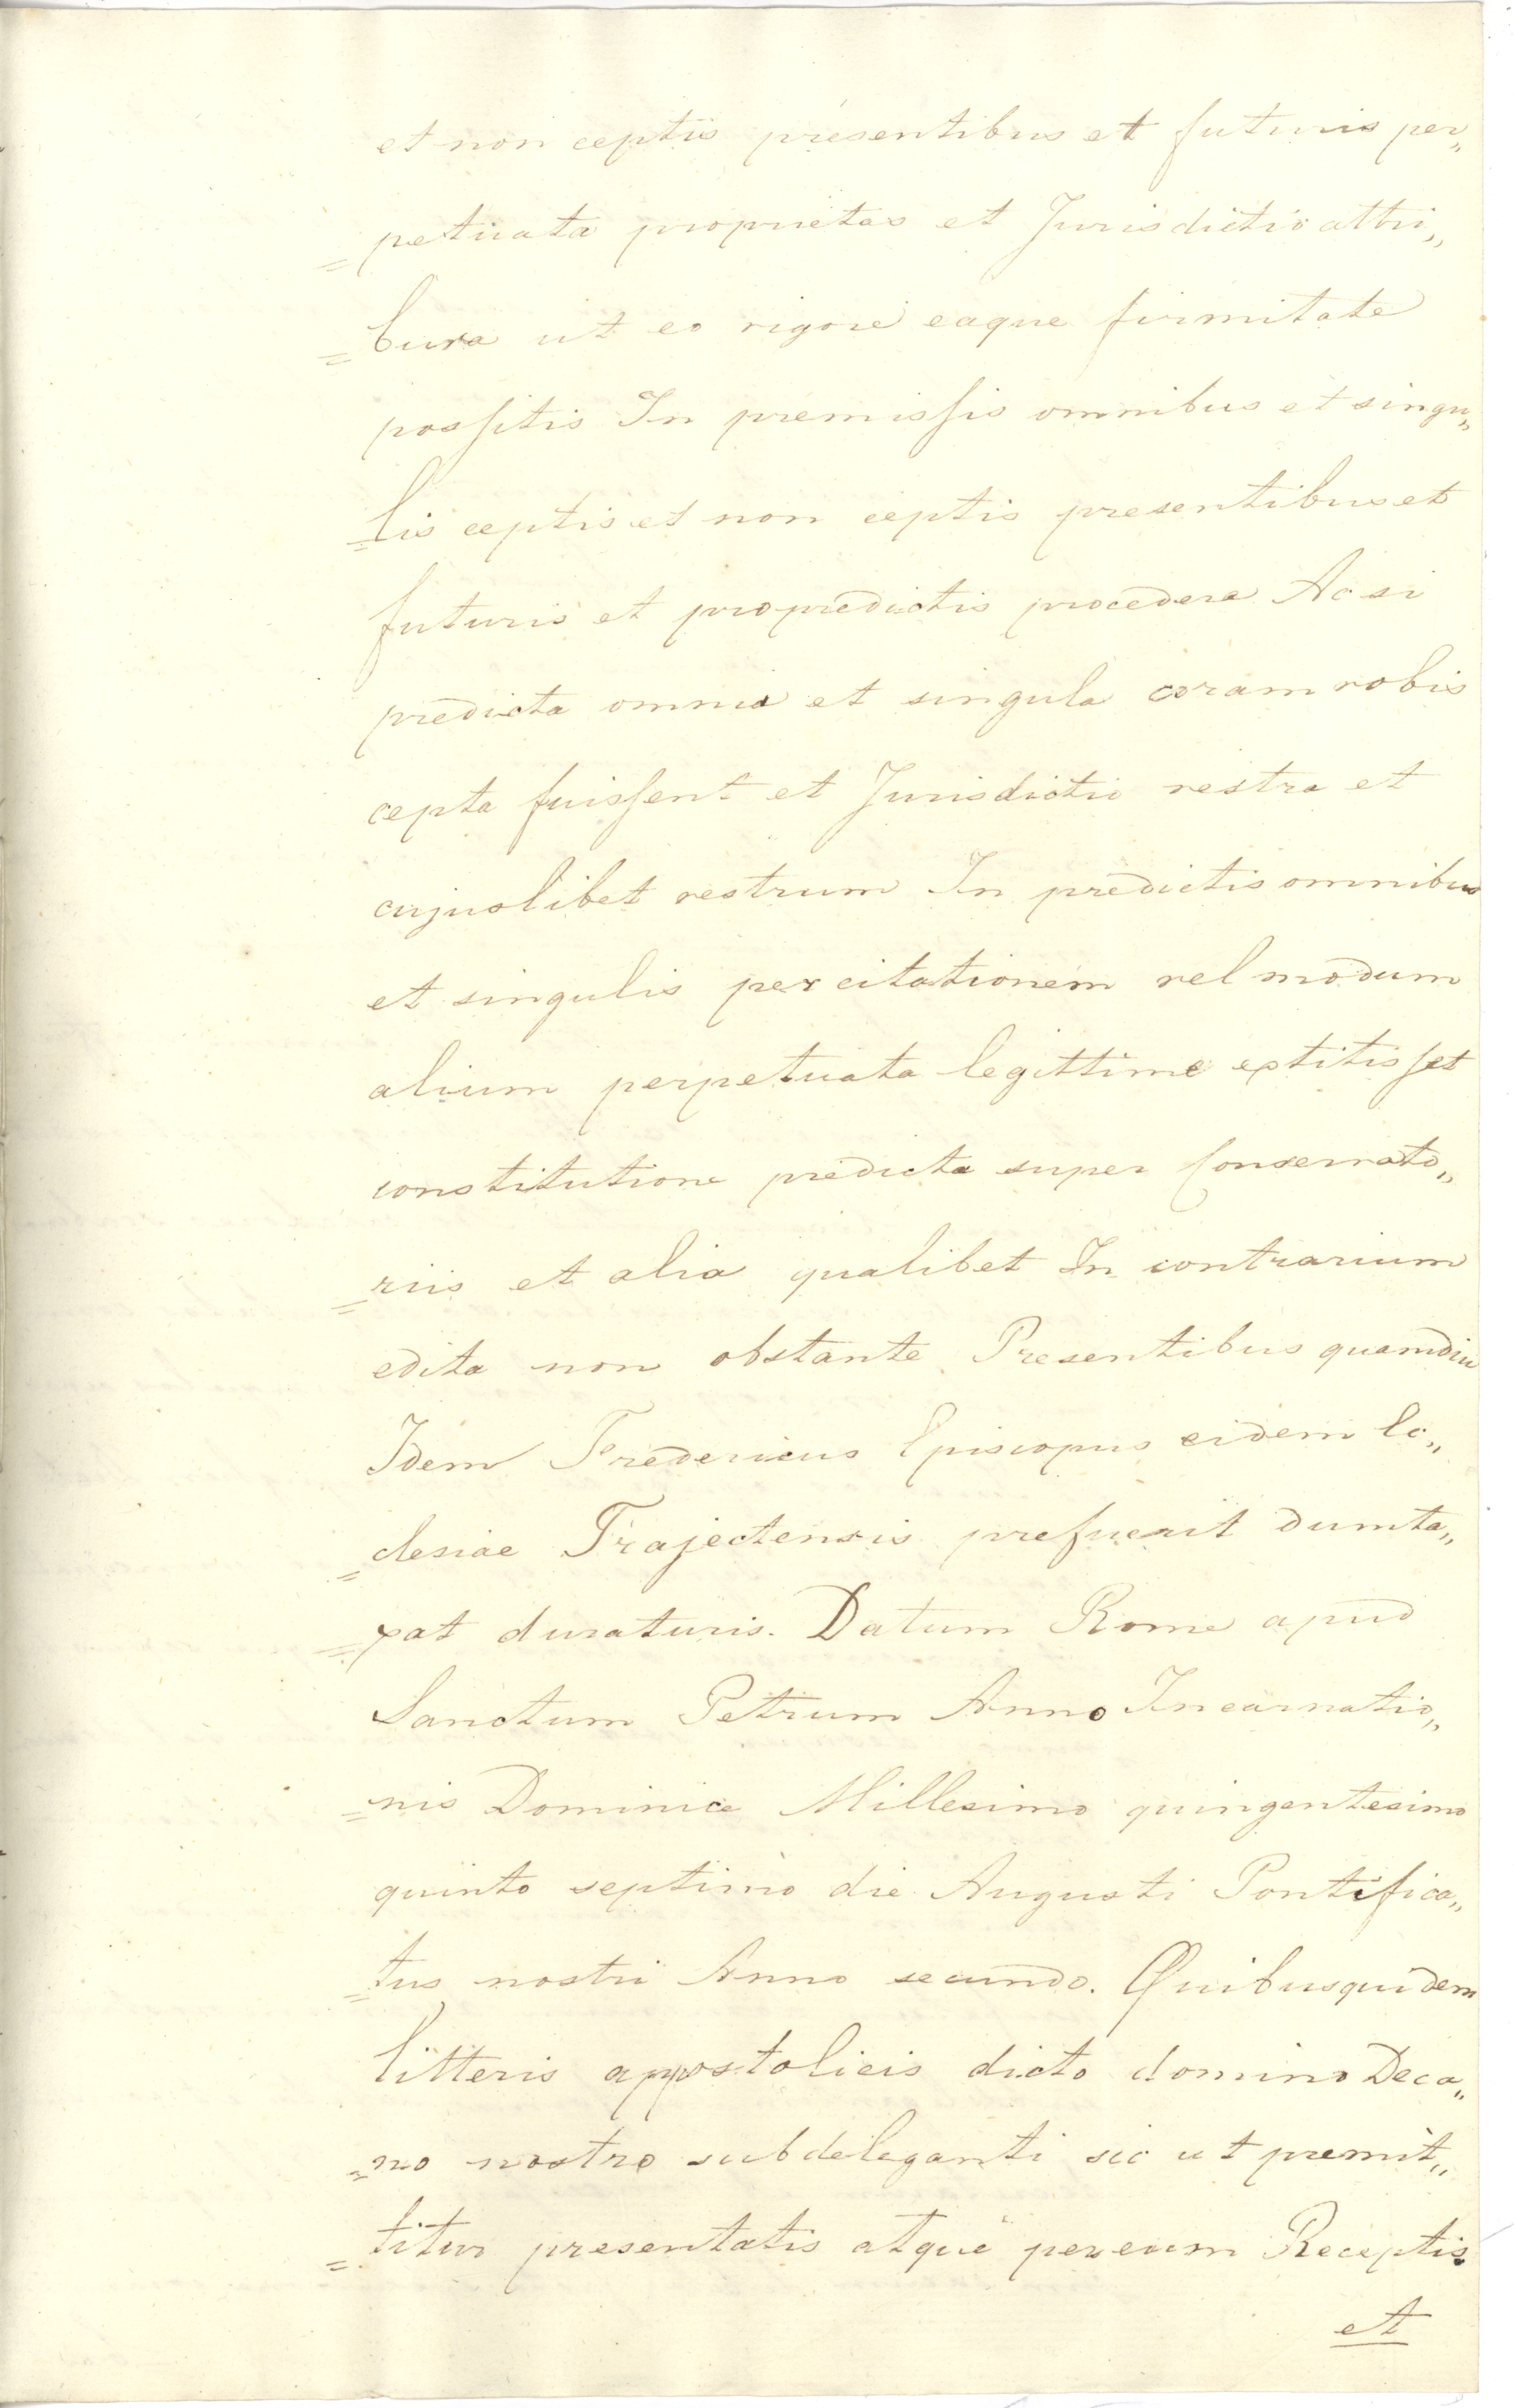 et non ceptis presentibus et futuris per„
= petuata proprietas et Jurisdictio attri„
= bura ut eo rigore eaque firmitate
possitis In premissis omnibus et singu„
= lis ceptis et non ceptis presentibus et
futuris et pro predictis procedere Ac si
predicta omnia et singula coram vobis
cepta fuissent et Jurisdictio vestra et
cujuslibet vestrum In predictis omnibus
et singulis per citationem vel modum
alium perpetuata legittime extitisset
constitutione predicta super Conservato„
= riis et alia qualibet In contrarium
edita non obstante Presentibus quamdiu
Idem Fredericus Episcopus eidem Ec„
= clesiae Trajectensis prefuerit dumta„
= xat duraturis. Datum Rome apud
Sanctum Petrum Anno Incarnatio„
= nis Dominice Millesimo quingentesimo
quinto septimo die Augusti Pontifica„
= tus nostri Anno secundo. Quibusquidem
litteris appostolicis dicto domino Deca„
= no nostro subdeleganti sic ut premit„
= titur presentatis atque per eum Receptis
et